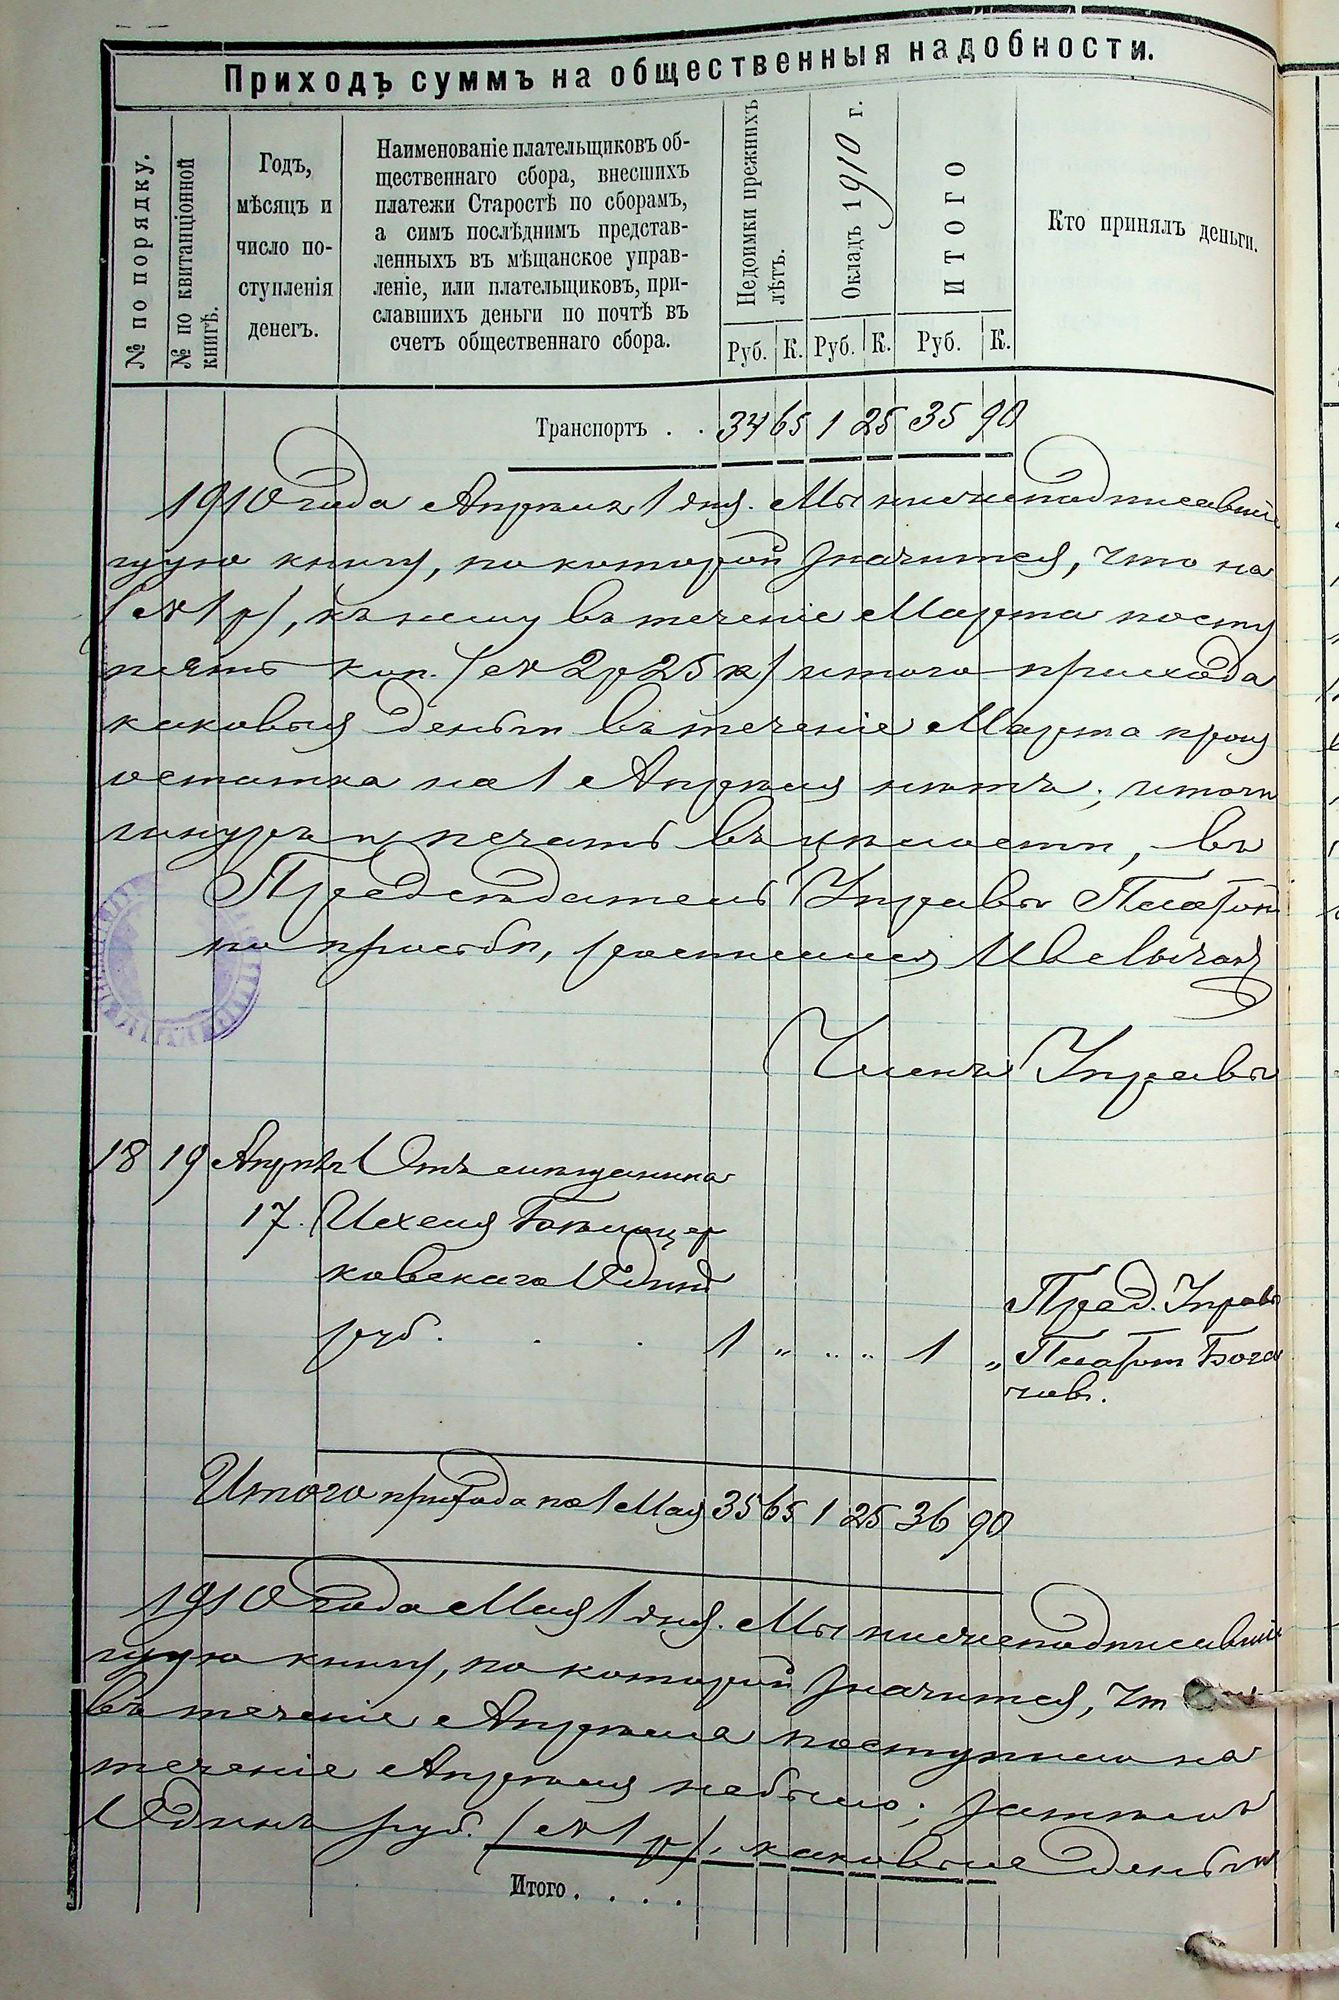 Приходъ суммъ на общественныя надобности.
№ по порядку.
№ по квитанціонной
книгѣ.
Годъ,
мѣсяцъ и
число по-
ступленія
денегъ.
Наименованіе плательщиковъ об-
щественнаго сбора, внесшихъ
платежи Старостѣ по сборамъ,
а симъ послѣднимъ представ-
ленныхъ въ мѣщанское управ-
леніе, или плательщиковъ, при-
славшихъ деньги по почтѣ въ
счетъ общественнаго сбора.
Недоимки прежнихъ
лѣтъ.
Окладъ 1910 г.
ИТОГО
Кто принялъ деньги.
Руб. К. Руб. К. Руб. К.
Транспортъ . . 34 65 1 25 35 90
1910 года Апрѣля 1 дня. Мы нижеподписавшіе
щую книгу, по которой значится, что на
(1 р), къ нему въ теченіе Марта посту
пять коп. (2 р 25 к) итого прихода
каковыя деньги въ теченіе Марта
остатка на 1 Апрѣля нѣтъ;
шнуръ и печать въ цѣлости, въ
Предсѣдатель Управы Платон
по просьбѣ, росписался
Членъ Управы
18 19 Апрѣл Отъ мѣщанина
17. Ихеля Бѣлоцер
ковскаго Один
руб. . . 1 " " " 1 "
Пред. Управы
Платон Бога
чов.
Итого прихода на 1 Мая 35 65 1 25 36 90
1910 года Мая 1 дня. Мы нижеподписавшіе
щую книгу, по которой значится, что
въ теченіе Апрѣля поступило на
теченіе Апрѣля небыло;
Одинъ руб. (1 р), каковые деньги
Итого . . . .